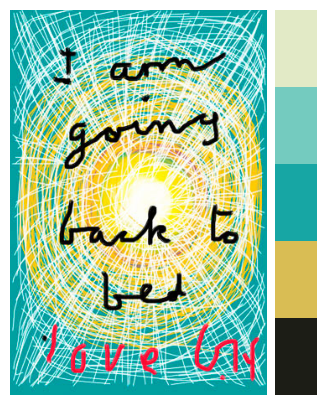 I am
going
back to
bed
love